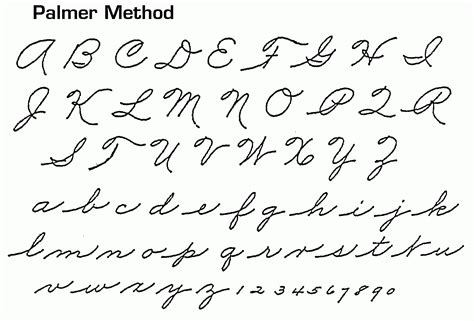 Palmer Method
A B C D E F G H I
J K L M N O P Q R
S T U V W X Y Z
a b c d e f g h i j k
l m n o p q r s t u
v w x y z 1 2 3 4 5 6 7 8 9 0